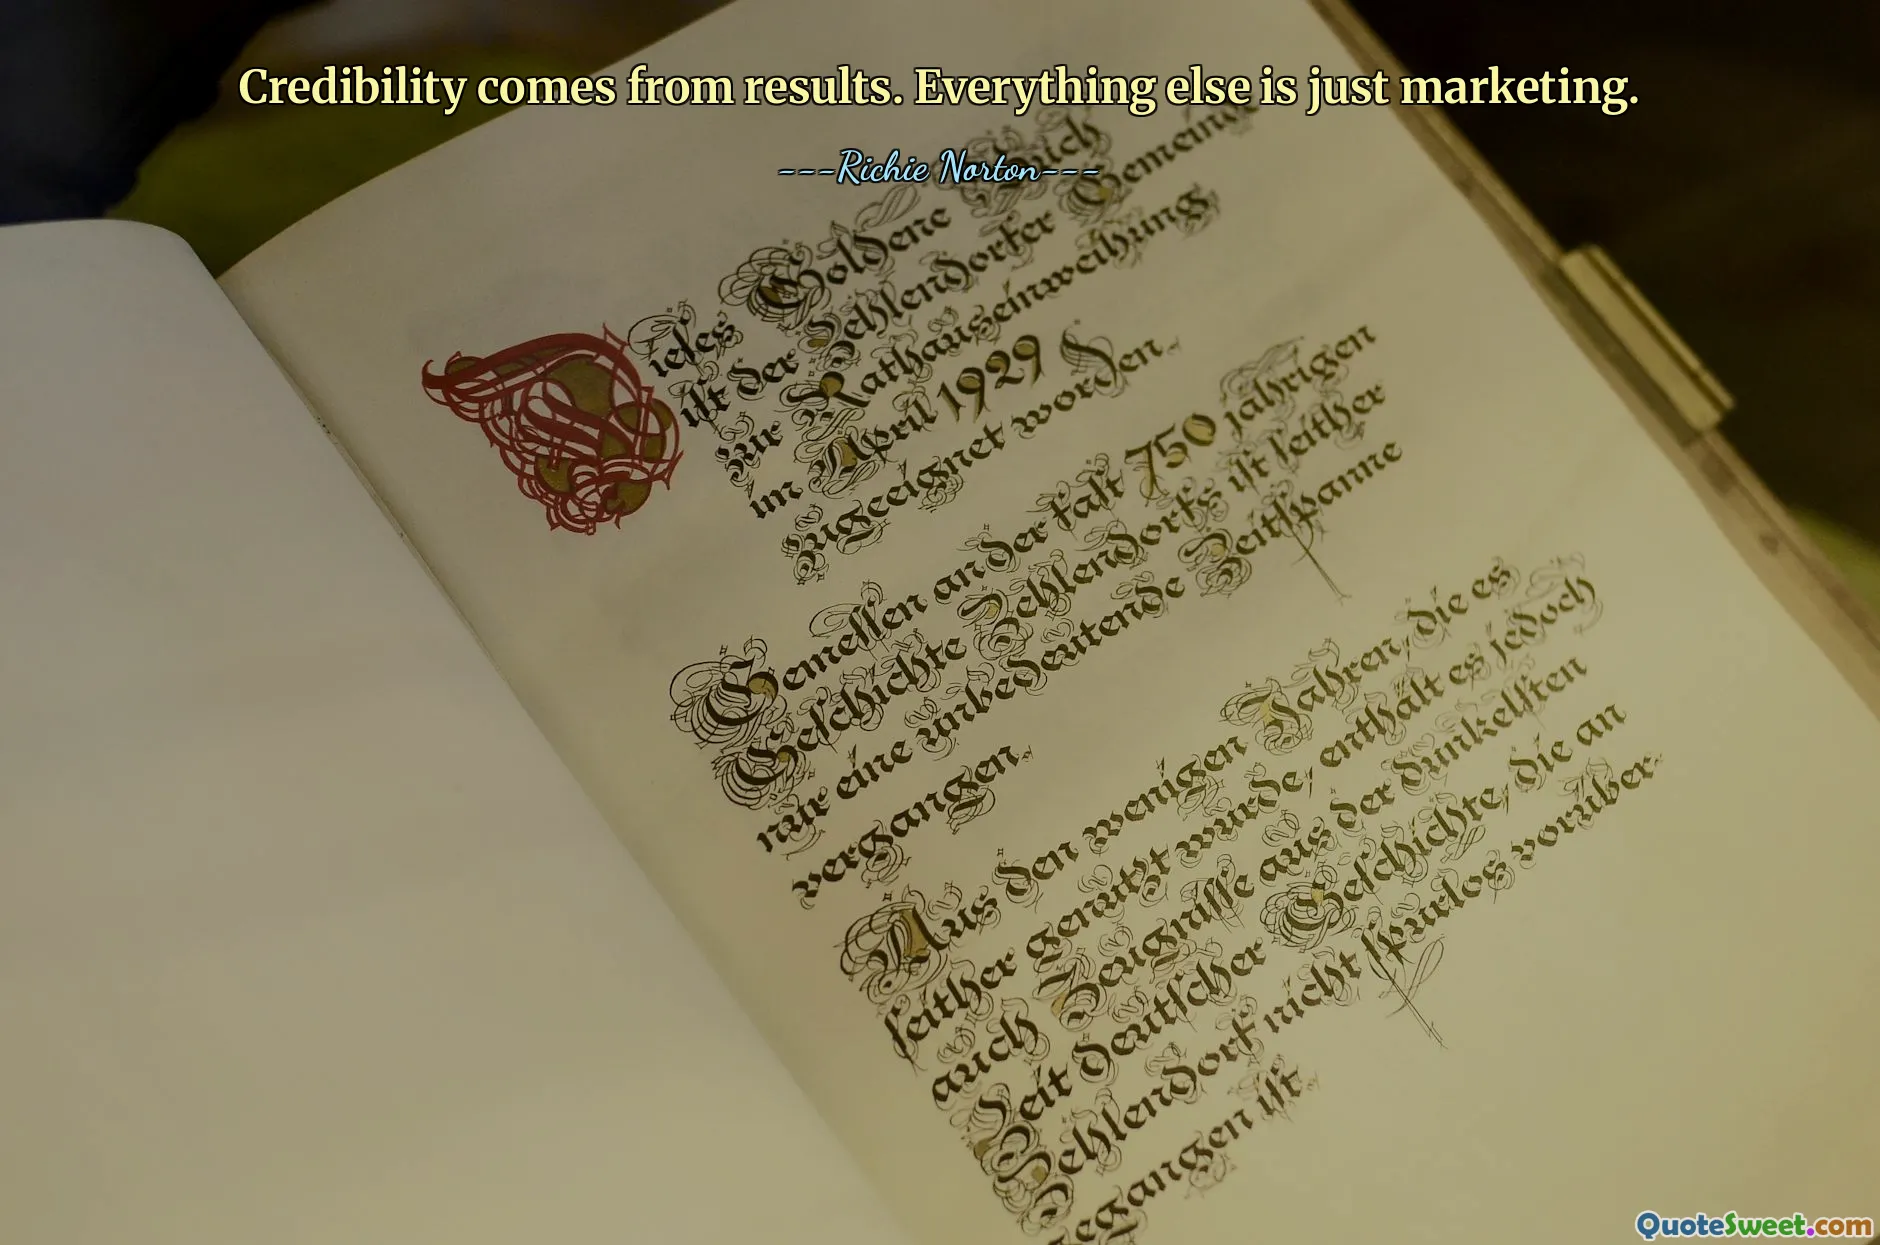 Credibility comes from results. Everything else is just marketing.
---Richie Norton---
Dieses Goldene Buch
ist der Zehlendorfer Gemeinde
zur Rathauseinweihung
im April 1929
zugeeignet worden.
Gemessen an der fast 750 jahrigen
Geschichte Zehlendorfs ist seither
nur eine unbedeutende Zeitspanne
vergangen.
Aus den wenigen Jahren, die es
seither genutzt wurde, enthält es jedoch
auch Zeugnisse aus der dunkelsten
Zeit deutscher Geschichte, die an
Zehlendorf nicht spurlos vorüber
gegangen ist.
QuoteSweet.com